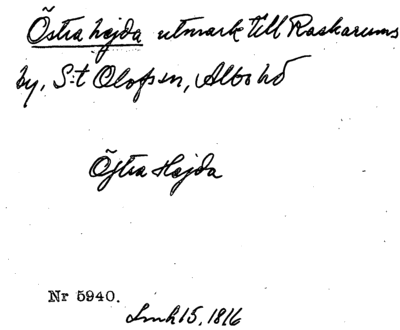 Östra hajda utmark till Raskarums
by, S:t Olofs sn, Albo hd
Östra Hajda
Nr 5940.
Lmh 15, 1816